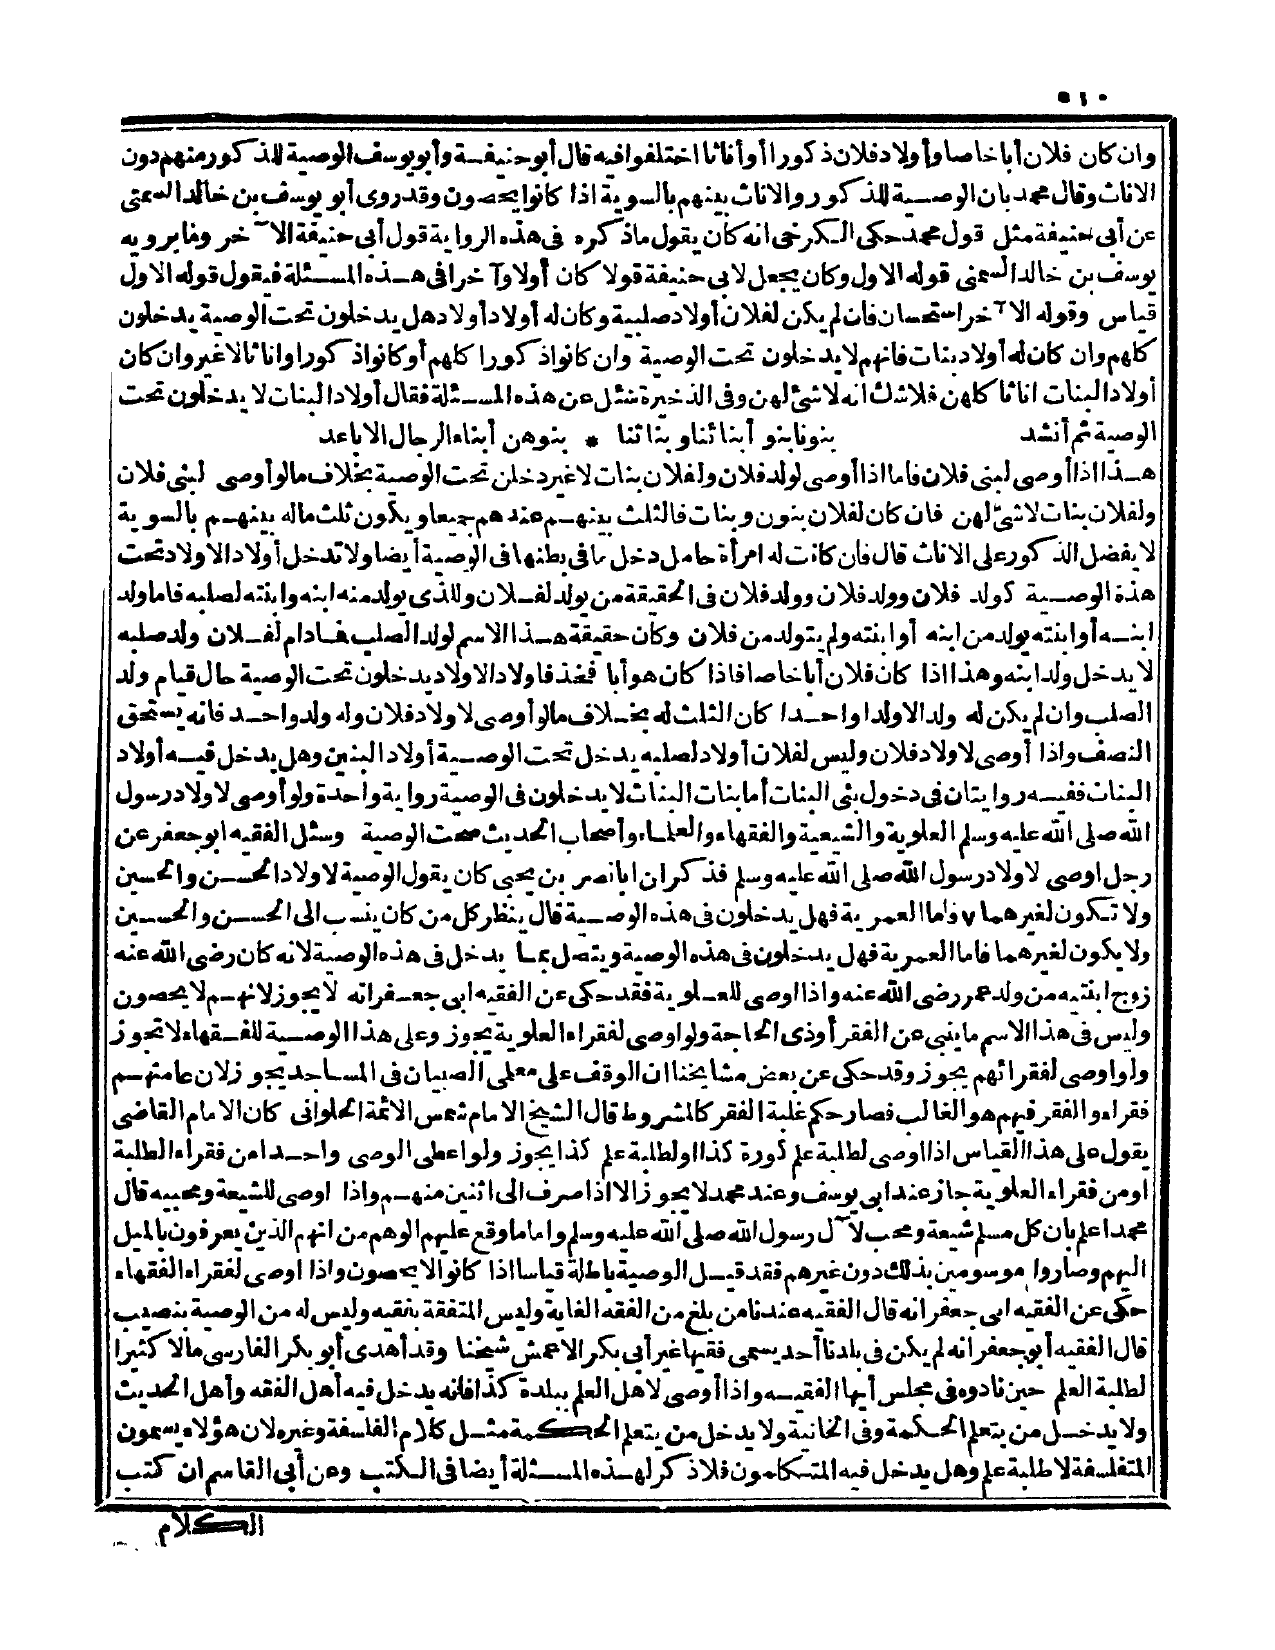 ٥١٠
وان كان فلان أبا خاصا وأولاد فلان ذكورا أو أناثا اختلفوا فيه قال أبو حنيفة وأبو يوسف الوصية للذكور منهم دون
الاناث وقال محمد بان الوصية للذكور والاناث بينهم بالسوية اذا كانوا يحصون وقد روى أبو يوسف بن خالد السمتى
عن أبى حنيفة مثل قول محمد حكى الكرخى انه كان يقول ماذكره فى هذه الرواية قول أبى حنيفة الآخر وما يرويه
يوسف بن خالد السمتى قوله الاول وكان يجعل لابى حنيفة قولا كان أولا وآخرا فى هذه المسئلة فيقول قوله الاول
قياس وقوله الآخر استحسان فان لم يكن لفلان أولاد صلبية وكان له أولاد أولاد هل يدخلون تحت الوصية يدخلون
كلهم وان كان له أولاد بنات فانهم لا يدخلون تحت الوصية وان كانوا ذكورا كلهم أو كانوا ذكورا واناثا لا غير وان كان
أولاد البنات اناثا كلهن فلا شك انه لا شئ لهن وفى الذخيرة سئل عن هذه المسئلة فقال أولاد البنات لا يدخلون تحت
الوصية ثم أنشد بنونا بنو أبنائنا وبناتنا * بنوهن أبناء الرجال الاباعد
هذا اذا أوصى لبنى فلان فاما اذا أوصى لولد فلان ولفلان بنات لا غير دخلن تحت الوصية بخلاف مالو أوصى لبنى فلان
ولفلان بنات لا شئ لهن فان كان لفلان بنون وبنات فالثلث بينهم عندهم جميعا ويكون ثلث ماله بينهم بالسوية
لا يفضل الذكور على الاناث قال فان كانت له امرأة حامل دخل ما فى بطنها فى الوصية أيضا ولا تدخل أولاد الاولاد تحت
هذه الوصية كولد فلان وولد فلان وولد فلان فى الحقيقة من يولد لفلان والذى يولد منه ابنه وابنته لصلبه فاما ولد
ابنه أو ابنته يولد من ابنه أو ابنته ولم يتولد من فلان وكان حقيقة هذا الاسم لولد الصلب فما دام لفلان ولد صلبه
لا يدخل ولد ابنه وهذا اذا كان فلان أبا خاصا فاذا كان هو أبا فخذ فاولاد الاولاد يدخلون تحت الوصية حال قيام ولد
الصلب وان لم يكن له ولد الا ولدا واحدا كان الثلث له بخلاف مالو أوصى لاولاد فلان وله ولد واحد فانه يستحق
النصف واذا أوصى لاولاد فلان وليس لفلان أولاد لصلبه يدخل تحت الوصية أولاد البنين وهل يدخل فيه أولاد
البنات ففيه روايتان فى دخول بنى البنات أما بنات البنات لا يدخلون فى الوصية رواية واحدة ولو أوصى لاولاد رسول
الله صلى الله عليه وسلم العلوية والشيعية والفقهاء والعلماء وأصحاب الحديث صحت الوصية وسئل الفقيه ابو جعفر عن
رجل اوصى لاولاد رسول الله صلى الله عليه وسلم فذكر ان ابا نصر بن يحيى كان يقول الوصية لاولاد الحسن والحسين
ولا تكون لغيرهما ٧ واما العمرية فهل يدخلون فى هذه الوصية قال ينظر كل من كان ينسب الى الحسن والحسين
ولا يكون لغيرهما فاما العمرية فهل يدخلون فى هذه الوصية ويتصل بما يدخل فى هذه الوصية لانه كان رضى الله عنه
زوج ابنتيه من ولد عمر رضى الله عنه واذا اوصى للعلوية فقد حكى عن الفقيه ابى جعفر انه لا يجوز لانهم لا يحصون
وليس فى هذا الاسم ما ينبئ عن الفقر أو ذى الحاجة ولو اوصى لفقراء العلوية يجوز وعلى هذا الوصية للفقهاء لا تجوز
ولو اوصى لفقرائهم يجوز وقد حكى عن بعض مشايخنا ان الوقف على معلمى الصبيان فى المساجد يجوز لان عامتهم
فقراء والفقر فيهم هو الغالب فصار حكم غلبة الفقر كالمشروط قال الشيخ الامام شمس الائمة الحلوانى كان الامام القاضى
يقول على هذا القياس اذا اوصى لطلبة علم كورة كذا او لطلبة علم كذا يجوز ولو اعطى الوصى واحدا من فقراء الطلبة
او من فقراء العلوية جاز عند ابى يوسف وعند محمد لا يجوز الا اذا صرف الى اثنين منهم واذا اوصى للشيعة ومحبيه قال
محمد اعلم بان كل مسلم شيعة ومحب لآل رسول الله صلى الله عليه وسلم واما ما وقع عليهم الوهم من انهم الذين يعرفون بالميل
اليهم وصاروا موسومين بذلك دون غيرهم فقد قيل الوصية باطلة قياسا اذا كانوا لا يحصون واذا اوصى لفقراء الفقهاء
حكى عن الفقيه ابى جعفر انه قال الفقيه عندنا من بلغ من الفقه الغاية وليس المتفقه بفقيه وليس له من الوصية بنصيب
قال الفقيه أبو جعفر انه لم يكن فى بلدنا أحد يسمى فقيها غير أبى بكر الاعمش شيخنا وقد أهدى أبو بكر الفارسى مالا كثيرا
لطلبة العلم حين نادوه فى مجلس أيها الفقيه واذا أوصى لاهل العلم ببلدة كذا فانه يدخل فيه أهل الفقه وأهل الحديث
ولا يدخل من يتعلم الحكمة وفى الخانية ولا يدخل من يتعلم الحكمة مثل كلام الفلاسفة وغيره لان هؤلاء يسمون
المتفلسفة لا طلبة علم وهل يدخل فيه المتكلمون فلا ذكر لهذه المسئلة أيضا فى الكتب وعن أبى القاسم ان كتب
الكلام